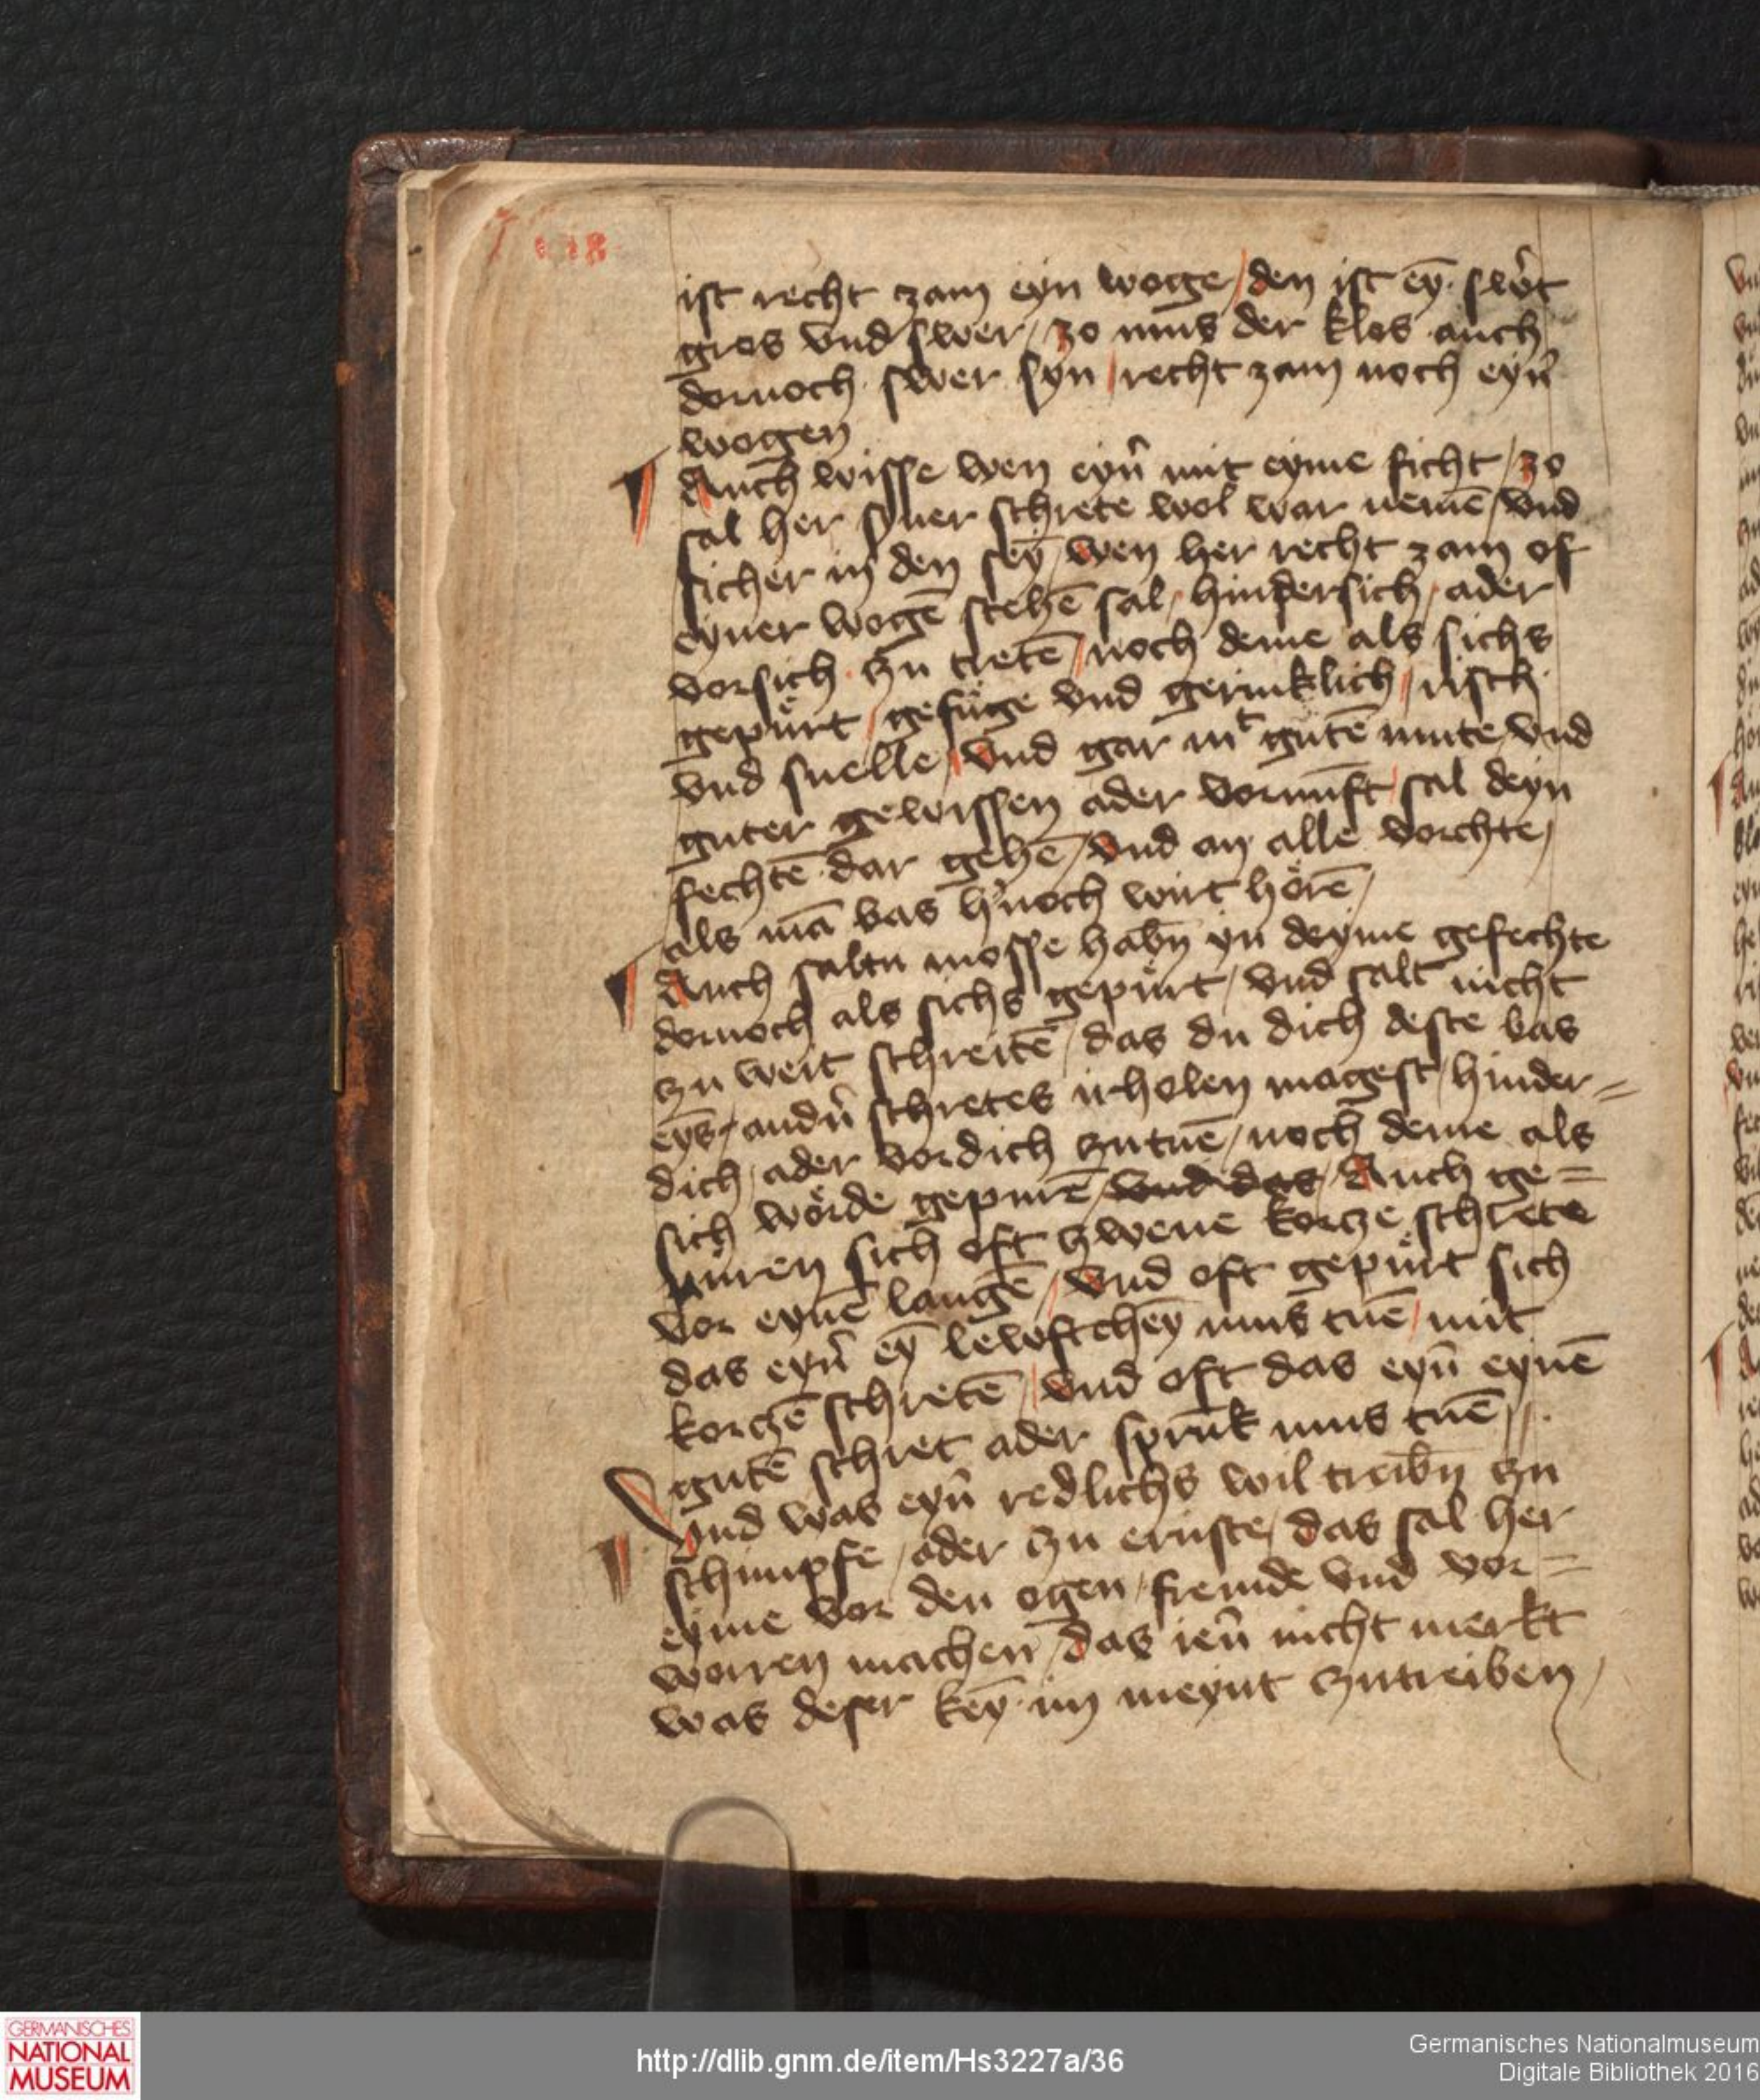 ist recht zam eyn woge / den ist eȳ swˢt
gros vnd swer / zo mus der klos auch
dornoch swer syn / recht zam noch eynˢ
wogen
Auch wisse wen eynˢ mit eyme ficht / zo
sal her syner schrete wol war nemē / vnd
sicher in den seȳ / wen her recht zam of
eyner wogē stehē sal / hindersich / ader
vorsich zu tretē / noch deme als sichs
gepürt / gefüge vnd gerinklich / risch
vnd snelle / vnd gar mᵗ gutē mute / vnd
guter gewissen ader vornuft / sal deyn
fechtē dar gehē / vnd an alle vorchte /
als mā bas hˢnoch wirt hörē /
Auch saltu mosse habn̄ yn deyme gefechte
dornoch als sichs gepürt / vnd salt nicht
zu weit schreitē / das du dich deste bas
eȳs andˢn schretes irholen magest / hinder=
dich / ader vordich zutuē / noch deme als
sich wörde gepurē / vnd das / Auch ge=
püren sich oft zwene korcze schrete
vor eynē langē / vnd oft gepürt sich
das eynˢ eȳ lewftcheȳ mus tuē / mit
korczē schretē / vnd oft das eynˢ eynē
gutē schret ader sprūk mus tuē /
Vnd was eynˢ redlichs wil treibn̄ zu
schimpfe / ader zu ernste / das sal her
eyme vor den ogen / fremde vnd vor=
worren machen / das ienˢ nicht merkt
was deser keȳ im meynt zutreiben /
GERMANISCHES
NATIONAL
MUSEUM
http://dlib.gnm.de/item/Hs3227a/36
Germanisches Nationalmuseum
Digitale Bibliothek 2016